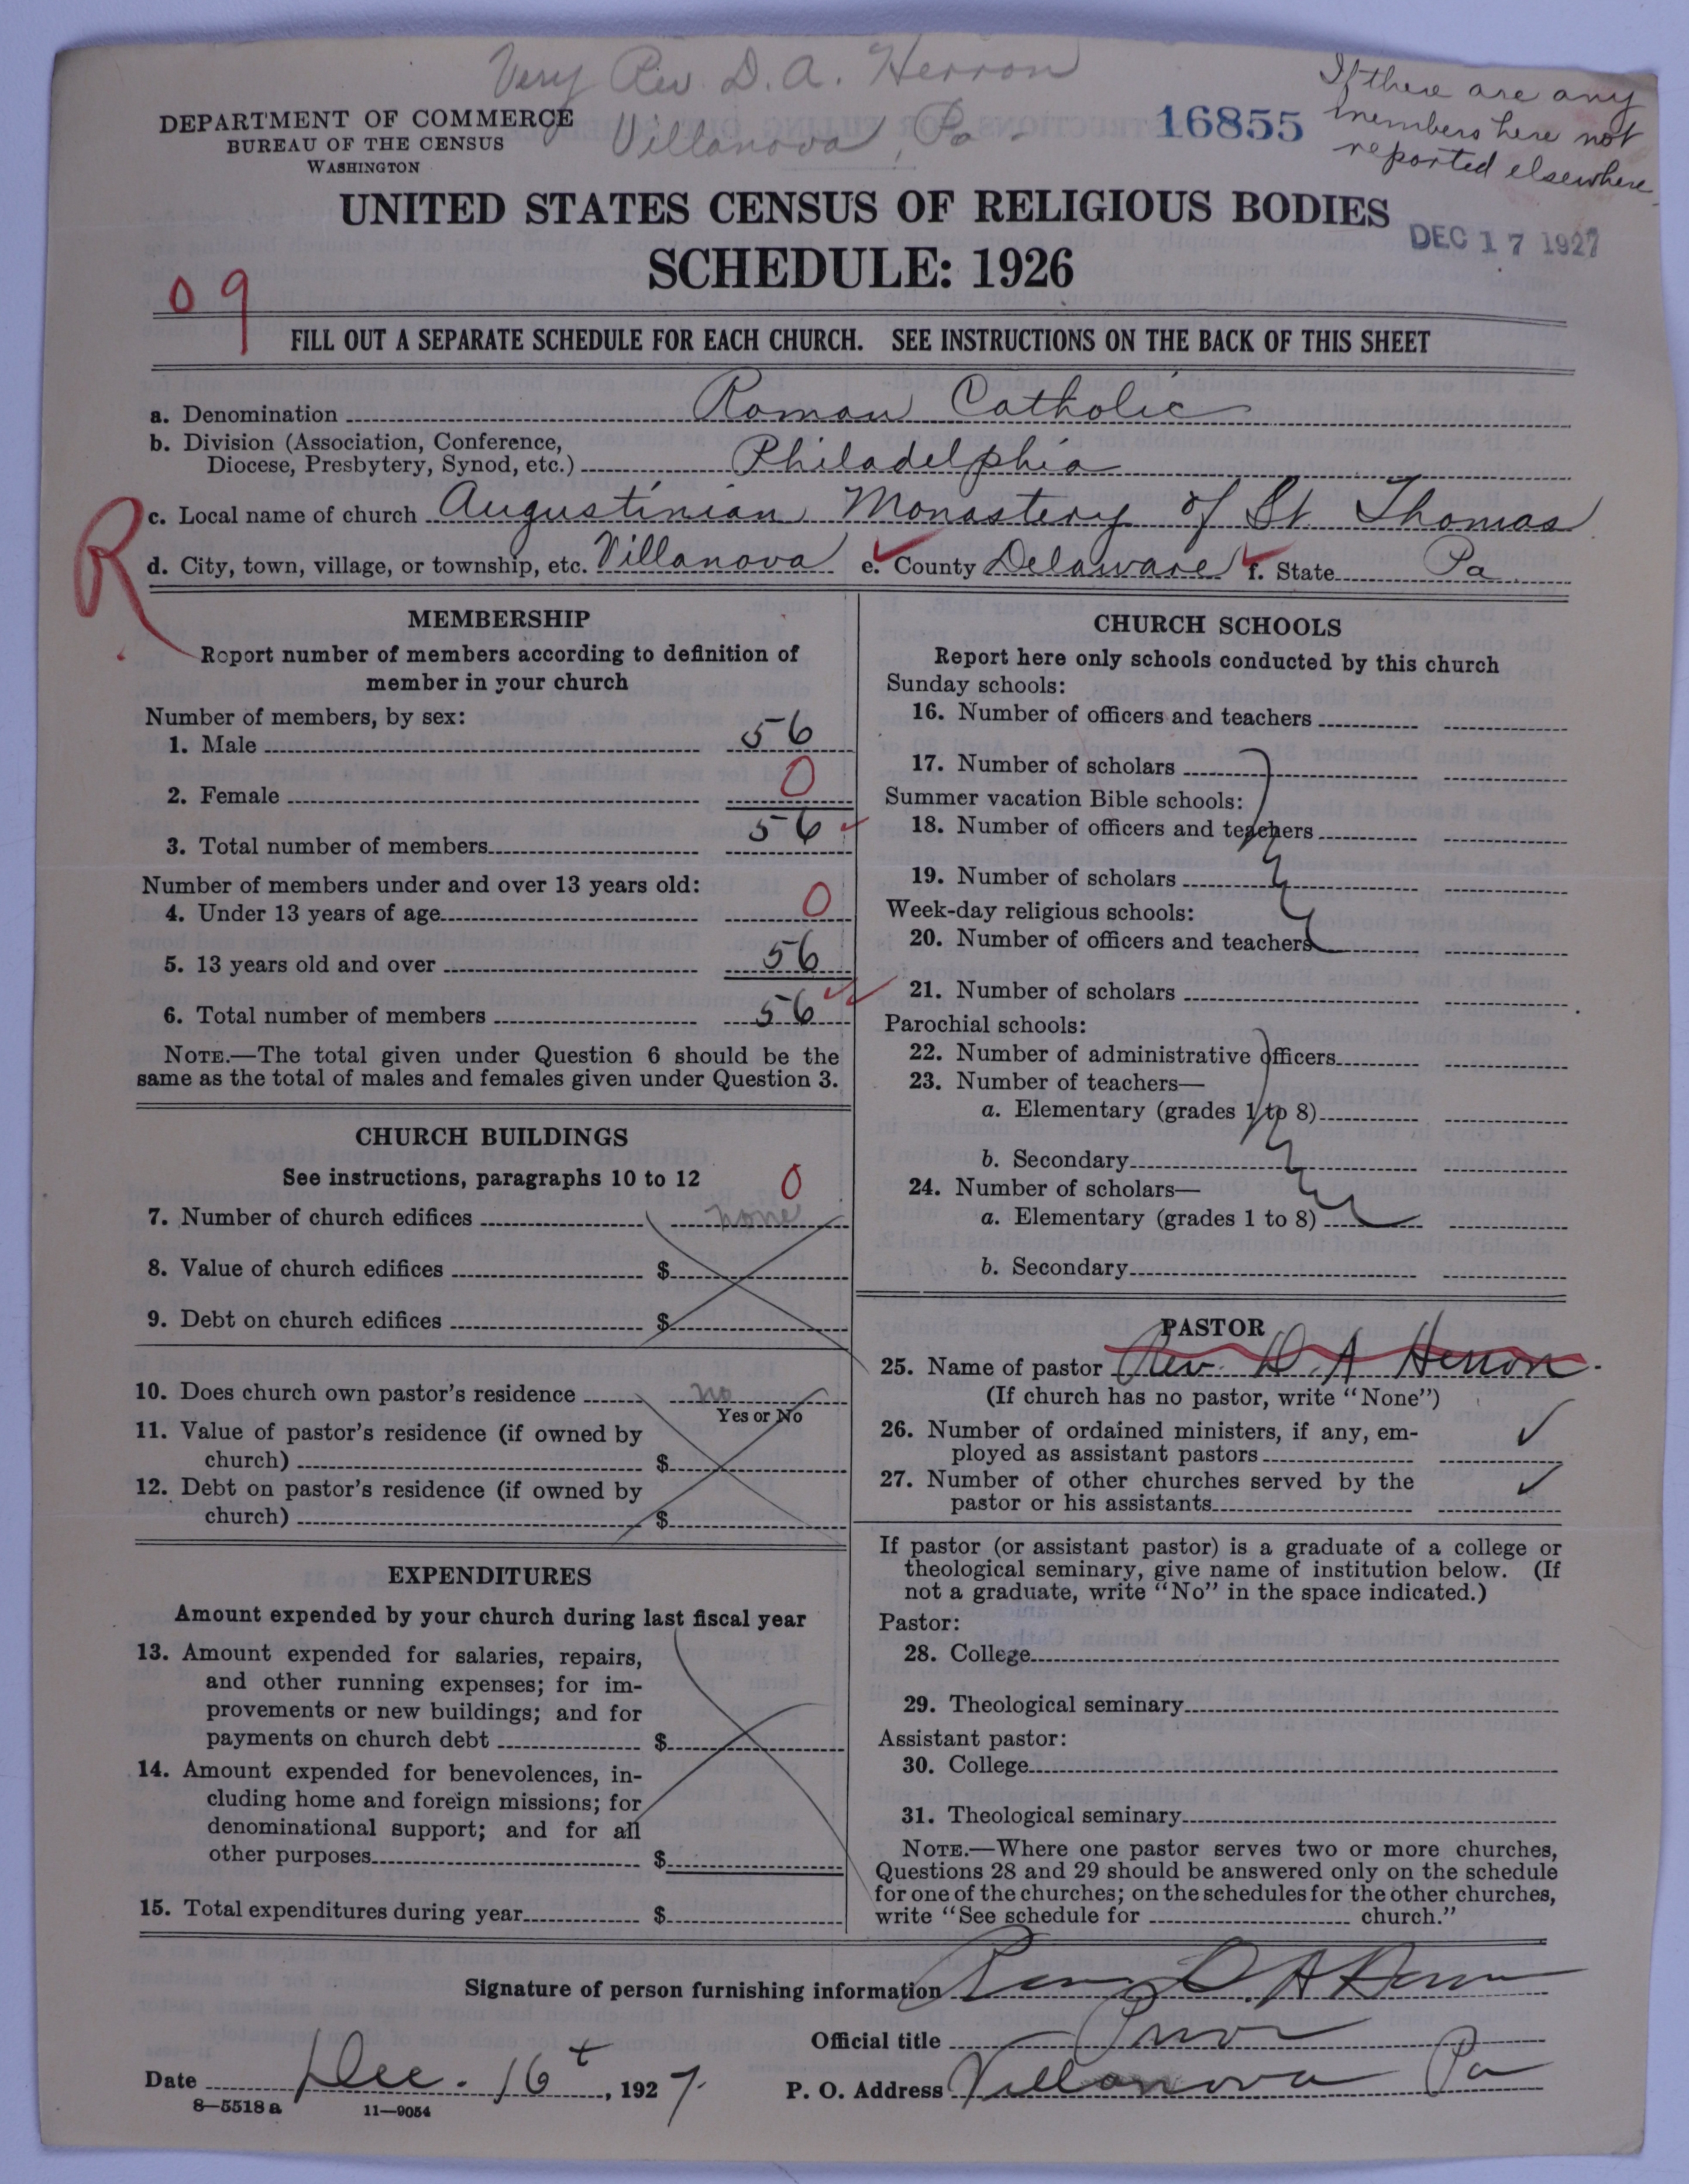 Very Rev. D. A. Herron
Villanova, Pa.
If there are any
members here not
reported elsewhere
DEPARTMENT OF COMMERCE
BUREAU OF THE CENSUS
WASHINGTON
16855
UNITED STATES CENSUS OF RELIGIOUS BODIES
DEC 17 1927
SCHEDULE: 1926
09
FILL OUT A SEPARATE SCHEDULE FOR EACH CHURCH. SEE INSTRUCTIONS ON THE BACK OF THIS SHEET
a. Denomination Roman Catholic
b. Division (Association, Conference,
Diocese, Presbytery, Synod, etc.) Philadelphia
R
c. Local name of church Augustinian Monastery of St. Thomas
d. City, town, village, or township, etc. Villanova e. County Delaware f. State Pa.
MEMBERSHIP
Report number of members according to definition of
member in your church
Number of members, by sex:
1. Male 56
2. Female 0
3. Total number of members 56
Number of members under and over 13 years old:
4. Under 13 years of age 0
5. 13 years old and over 56
6. Total number of members 56
NOTE.—The total given under Question 6 should be the
same as the total of males and females given under Question 3.
CHURCH BUILDINGS
See instructions, paragraphs 10 to 12 0
7. Number of church edifices none
8. Value of church edifices $
9. Debt on church edifices $
10. Does church own pastor's residence no
Yes or No
11. Value of pastor's residence (if owned by
church) $
12. Debt on pastor's residence (if owned by
church) $
EXPENDITURES
Amount expended by your church during last fiscal year
13. Amount expended for salaries, repairs,
and other running expenses; for im-
provements or new buildings; and for
payments on church debt $
14. Amount expended for benevolences, in-
cluding home and foreign missions; for
denominational support; and for all
other purposes $
15. Total expenditures during year $
CHURCH SCHOOLS
Report here only schools conducted by this church
Sunday schools:
16. Number of officers and teachers
17. Number of scholars
Summer vacation Bible schools:
18. Number of officers and teachers
19. Number of scholars
Week-day religious schools:
20. Number of officers and teachers
21. Number of scholars
Parochial schools:
22. Number of administrative officers
23. Number of teachers—
a. Elementary (grades 1 to 8)
b. Secondary
24. Number of scholars—
a. Elementary (grades 1 to 8)
b. Secondary
PASTOR
25. Name of pastor Rev. D. A. Herron.
(If church has no pastor, write "None")
26. Number of ordained ministers, if any, em-
ployed as assistant pastors
27. Number of other churches served by the
pastor or his assistants
If pastor (or assistant pastor) is a graduate of a college or
theological seminary, give name of institution below. (If
not a graduate, write "No" in the space indicated.)
Pastor:
28. College
29. Theological seminary
Assistant pastor:
30. College
31. Theological seminary
NOTE.—Where one pastor serves two or more churches,
Questions 28 and 29 should be answered only on the schedule
for one of the churches; on the schedules for the other churches,
write "See schedule for church."
Signature of person furnishing information D. A. Herron
Official title Prior
Date Dec. 16t, 1927. P. O. Address Villanova Pa
8—5518 a 11—9054